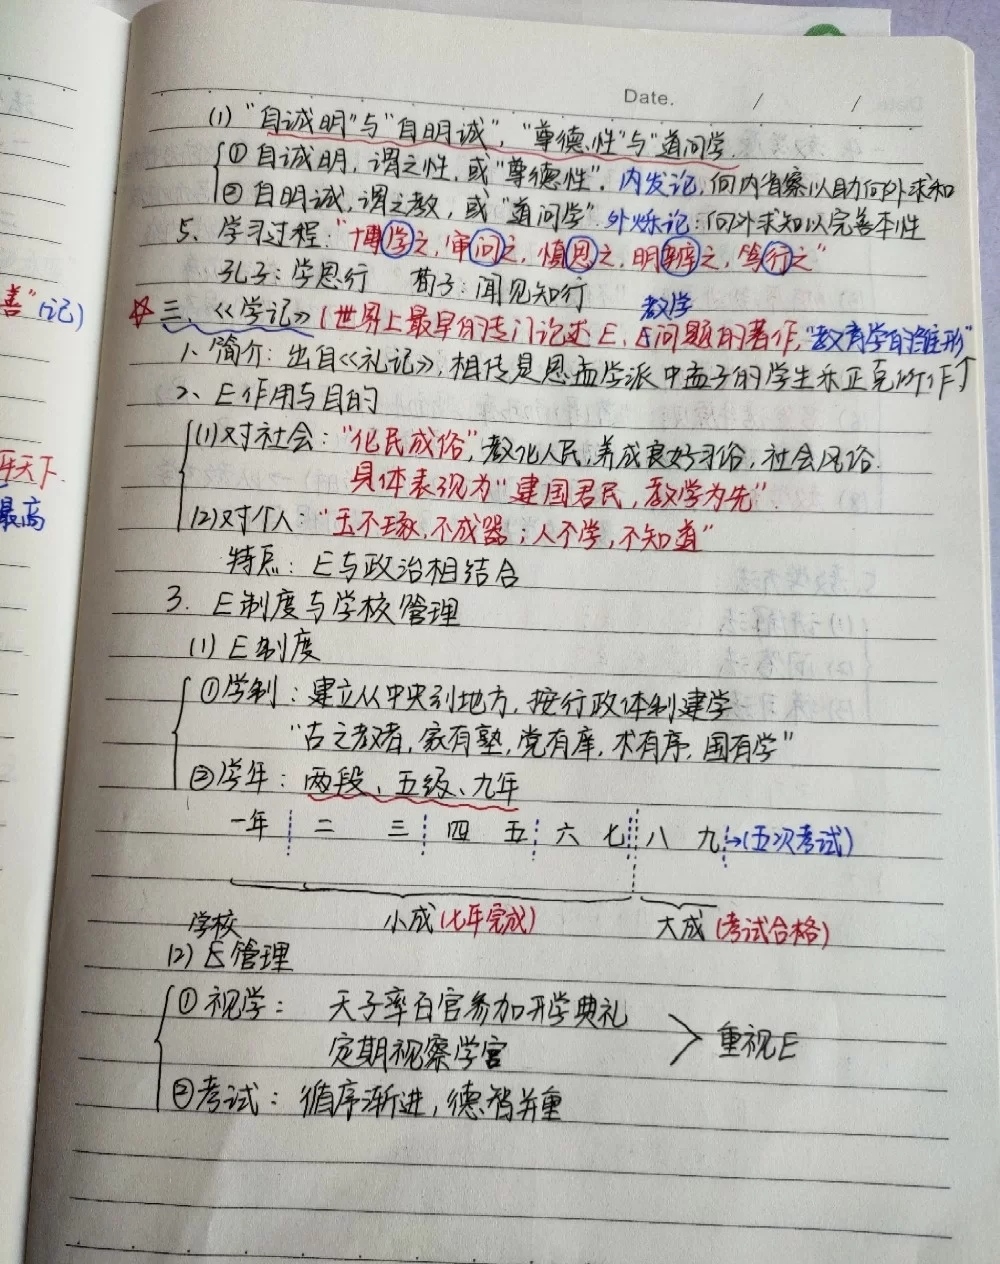 Date. / /
(1) "自诚明"与"自明诚", "尊德性"与"道问学"
① 自诚明, 谓之性, 或"尊德性". 内发论, 向内省察以助向外求知
② 自明诚, 谓之教, 或"道问学". 外烁论: 向外求知以完善本性
5、学习过程: "博学之, 审问之, 慎思之, 明辨之, 笃行之"
孔子: 学思行 荀子: 闻见知行
教学
善"(记)
☆三、《学记》(世界上最早的专门论述E、E问题的著作, "教育学的雏形")
1、简介: 出自《礼记》, 相传是思孟学派中孟子的学生乐正克所作
2、E作用与目的
(1)对社会: "化民成俗", 教化人民, 养成良好习俗, 社会风俗.
平天下.
具体表现为"建国君民, 教学为先".
最高
(2)对个人 "玉不琢, 不成器; 人不学, 不知道"
特点: E与政治相结合
3. E制度与学校管理
(1) E制度
①学制: 建立从中央到地方, 按行政体制建学
"古之教者, 家有塾, 党有庠, 术有序, 国有学"
②学年: 两段、五级、九年
一年 二 三 四 五 六 七 八 九→(五次考试)
小成(七年完成) 大成(考试合格)
学校
(2) E管理
① 视学: 天子率百官参加开学典礼
定期视察学宫
重视E
②考试: 循序渐进, 德智并重